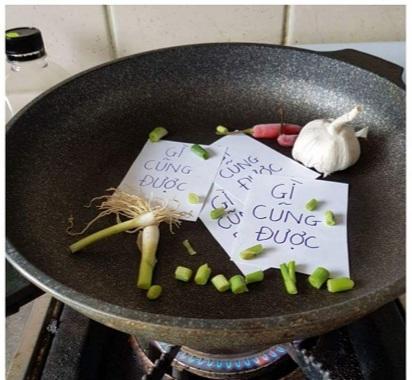 GÌ
CŨNG
ĐƯỢC
CŨNG
ĐƯỢC
GÌ
GÌ
CŨNG
ĐƯỢC